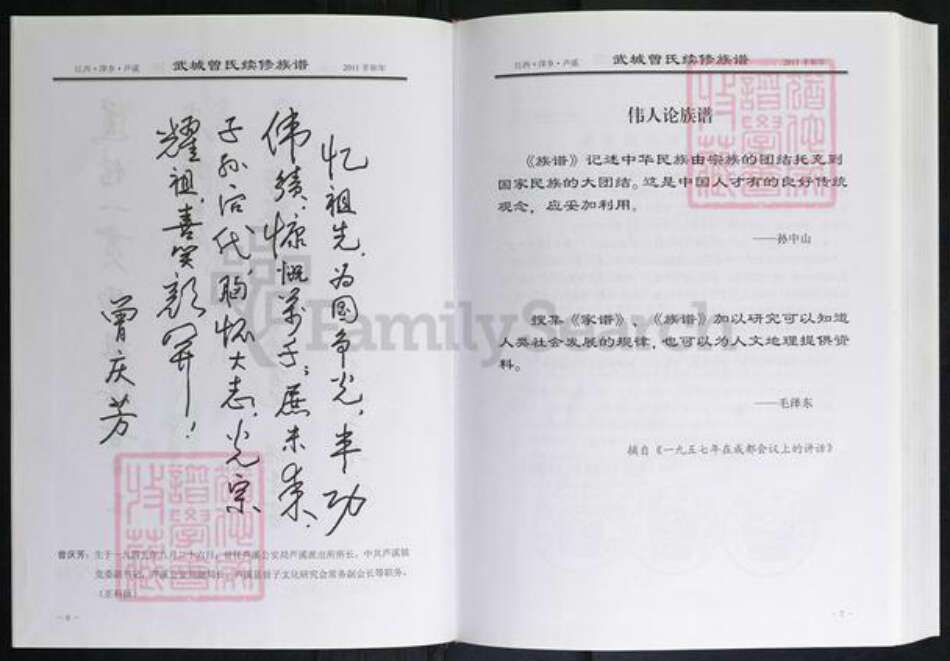 江西·萍乡·芦溪 武城曾氏续修族谱 2011辛卯年
忆祖先,为国争光,丰功
伟绩,慷慨万千;展未来,
子孙容代,胸怀大志,光宗
耀祖,喜笑颜开!
曾庆芳
曾庆芳:生于一九四九年八月二十六日,曾任芦溪公安局芦溪派出所所长,中共芦溪镇
党委副书记,芦溪公安局副局长,芦溪县曾子文化研究会常务副会长等职务。
(正科级)
- 6 -
江西·萍乡·芦溪 武城曾氏续修族谱 2011辛卯年
伟人论族谱
《族谱》记述中华民族由宗族的团结扩充到
国家民族的大团结。这是中国人才有的良好传统
观念,应妥加利用。
——孙中山
搜集《家谱》、《族谱》加以研究可以知道
人类社会发展的规律,也可以为人文地理提供资
料。
——毛泽东
摘自《一九五七年在成都会议上的讲话》
- 7 -
FamilySearch